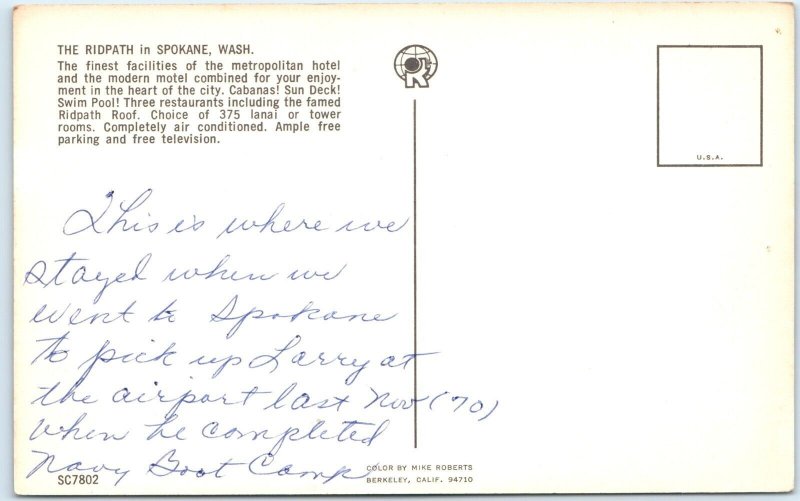 THE RIDPATH in SPOKANE, WASH.
The finest facilities of the metropolitan hotel
and the modern motel combined for your enjoy-
ment in the heart of the city. Cabanas! Sun Deck!
Swim Pool! Three restaurants including the famed
Ridpath Roof. Choice of 375 lanai or tower
rooms. Completely air conditioned. Ample free
parking and free television.
U.S.A.
This is where we
stayed when we
went to Spokane
to pick up Larry at
the airport last Nov ('70)
when he completed
Navy Boot Camp
SC7802
COLOR BY MIKE ROBERTS
BERKELEY, CALIF. 94710